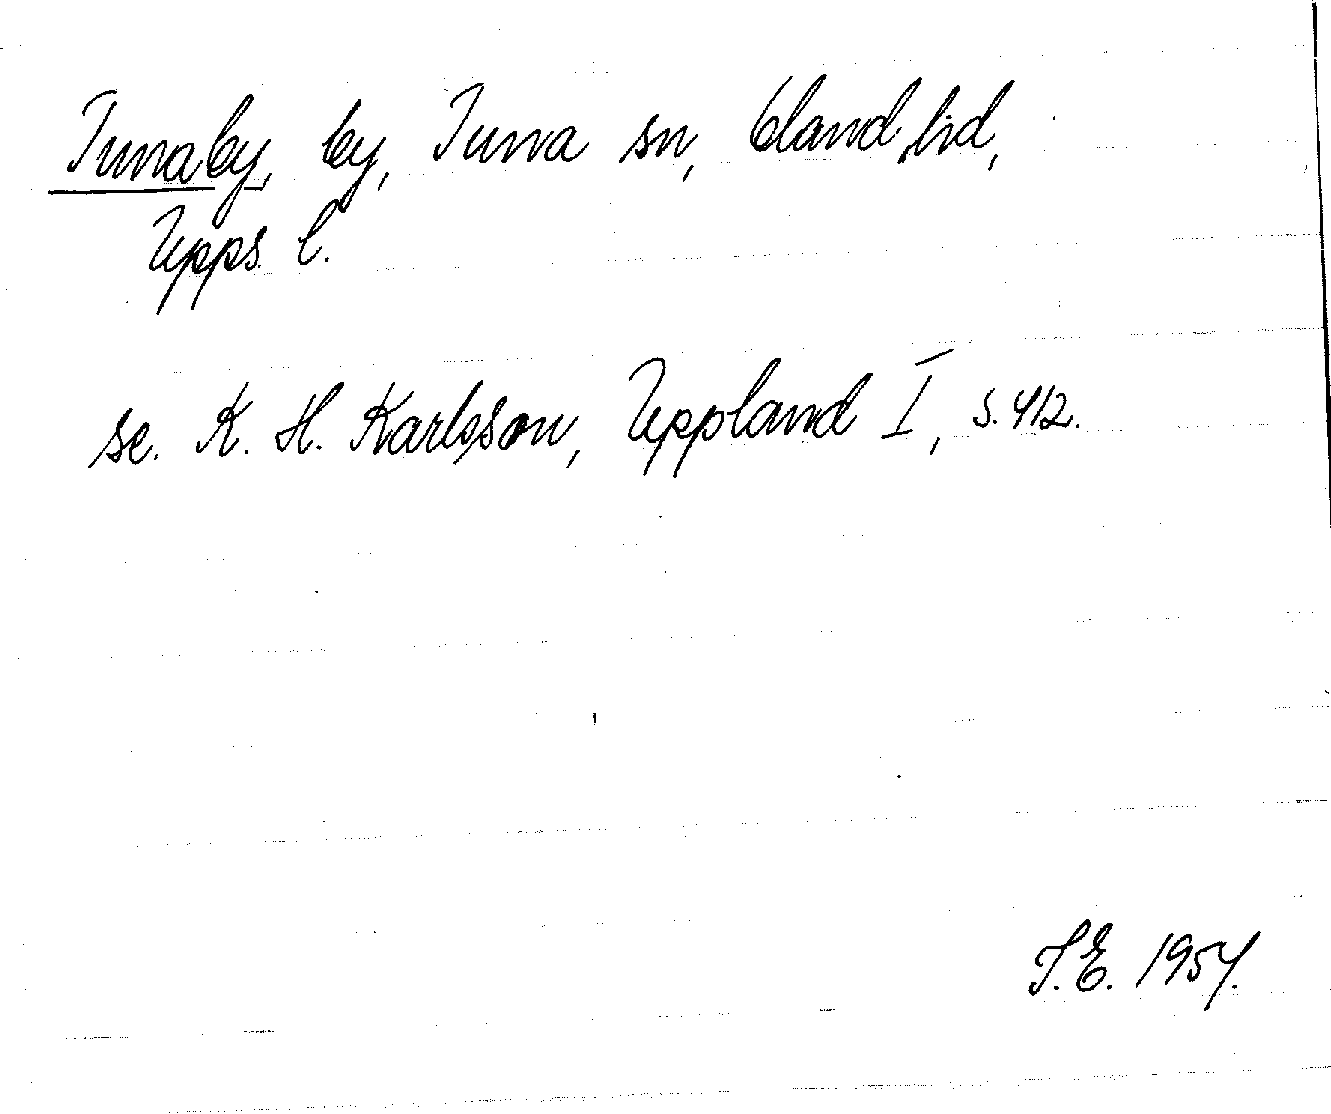 Tunaby, by, Tuna sn, Oland hd,
Upps. l.
se. K. H. Karlsson, Uppland I, s. 412.
J.E. 1954.